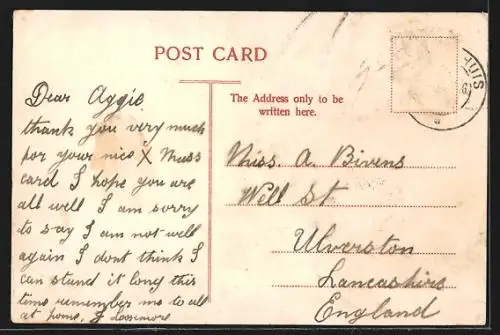 POST CARD
HUIS
Dear Aggie
thank you very much
for your nice X Mass
card I hope you are
all well I am sorry
to say I am not well
again I dont think I
can stand it long this
time remember me to all
at home.
The Address only to be
written here.
Miss. A. Bivens
Well St
Ulverston
Lancashire
England